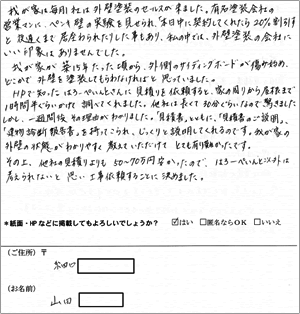 我が家は毎月1社は外壁塗装のセールスが来ました。有名塗装会社の
営業マンに、ペンキ壁の実験を見せられ、「本日中に契約してくれたら20%割引す
と夜遅くまで居座わられたりした事もあり、私の中では、外壁塗装の会社に
いい印象はありませんでした。
我が家が築15年たった頃から、外側のサイディングボードが傷み始め、
どこかで外壁を塗装してもらわなければと思っていました。
HPで知ったはろーぺいんとさんに見積りを依頼すると、家の周りから屋根まで
1時間半ぐらいかけて調べてくれました。他社は長くて30分ぐらいなので驚きました
しかし、一週間後その理由がわかりました。「見積書」とともに、「見積書のご説明」、
「建物診断報告書」を持ってこられ、じっくりと説明してくれるのです。我が家の
外壁の状態がわかりやすく教えていただけてとても有り難かったです。
その上、他社の見積りよりも50〜70万円安かったので、はろーぺいんと以外は
考えられないと思い工事依頼することに決めました。
*紙面・HPなどに掲載してもよろしいでしょうか? ☑はい □匿名ならOK □いいえ
(ご住所) 〒
(お名前)
山田